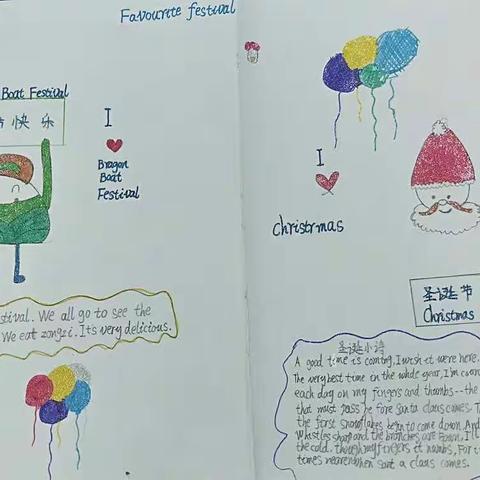 Favourite festival
Boat Festival
快乐
I
Bragon
Boat
Festival
stival. We all go to see the
We eat zongzi. It's very delicious.
I
christrmas
圣诞节
Christmas
圣诞小诗
A good time is coming, I wish it were here.
The very best time in the whole year, I'm
each day on my fingers and thumbs--the
that must pass be fore Santa claus comes.
the first snow flakes to come down. And
Whistles sharp and the branches are
the cold, though my fingers it numbs, For it
times nearer when sant a claus comes.